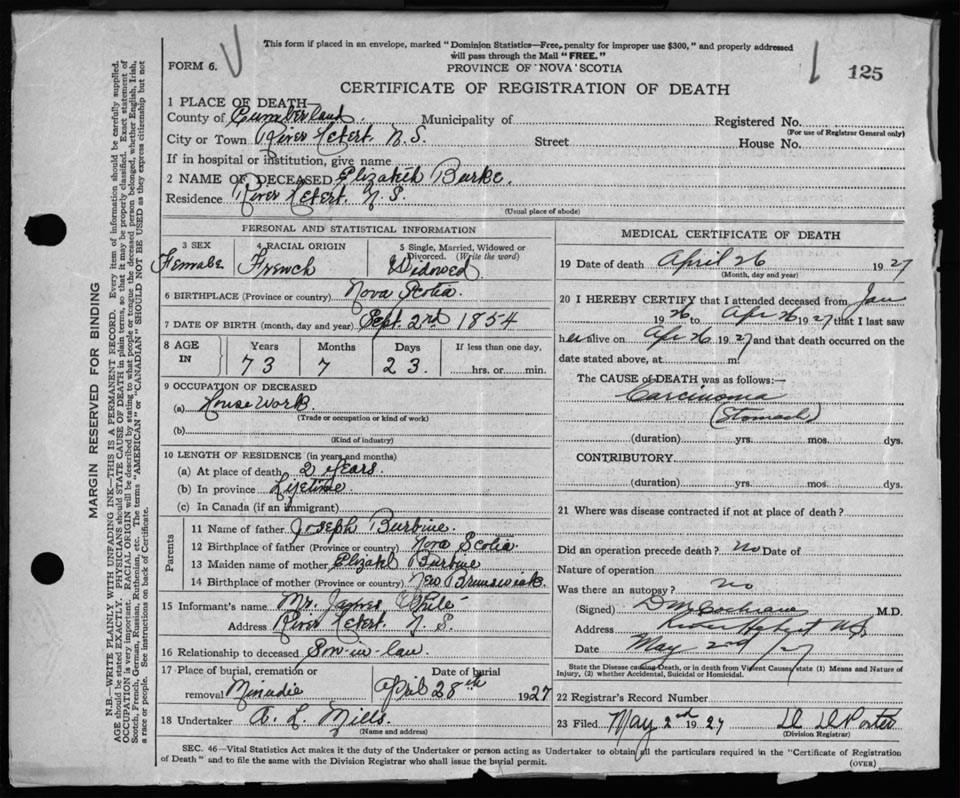 This form if placed in an envelope, marked "Dominion Statistics—Free, penalty for improper use $300," and properly addressed
will pass through the Mail "FREE."
FORM 6.
PROVINCE OF NOVA SCOTIA
125
CERTIFICATE OF REGISTRATION OF DEATH
1 PLACE OF DEATH—
County of Cumberland Municipality of Registered No.
(For use of Registrar General only)
City or Town River Hebert. N.S. Street House No.
If in hospital or institution, give name
2 NAME OF DECEASED Elizabeth Burke.
Residence River Hebert. N.S.
(Usual place of abode)
PERSONAL AND STATISTICAL INFORMATION
3 SEX 4 RACIAL ORIGIN 5 Single, Married, Widowed or
Divorced. (Write the word)
Female French Widowed
6 BIRTHPLACE (Province or country) Nova Scotia.
7 DATE OF BIRTH (month, day and year) Sept. 2nd 1854
8 AGE IN Years Months Days If less than one day.
73 7 23. hrs. or min.
9 OCCUPATION OF DECEASED
(a) House Work
(Trade or occupation or kind of work)
(b)
(Kind of industry)
10 LENGTH OF RESIDENCE (in years and months)
(a) At place of death 2 years.
(b) In province Lifetime
(c) In Canada (if an immigrant)
Parents
11 Name of father Joseph Burbine.
12 Birthplace of father (Province or country) Nova Scotia
13 Maiden name of mother Elizabeth Burbine
14 Birthplace of mother (Province or country) New Brunswick.
15 Informant's name Mr. James White
Address River Hebert. N.S.
16 Relationship to deceased Son-in-law
17 Place of burial, cremation or Date of burial
removal Menudie April 28th 1927
18 Undertaker A. L. Mills.
(Name and address)
MEDICAL CERTIFICATE OF DEATH
19 Date of death April 26 1927
(Month, day and year)
20 I HEREBY CERTIFY that I attended deceased from Jan
1926 to Apr 26 1927 that I last saw
her alive on Apr 26 1927 and that death occurred on the
date stated above, at m.
The CAUSE of DEATH was as follows:—
Carcinoma
(Stomach)
(duration) yrs. mos. dys.
CONTRIBUTORY
(duration) yrs. mos. dys.
21 Where was disease contracted if not at place of death?
Did an operation precede death? No Date of
Nature of operation
Was there an autopsy? No
(Signed) D M Cochrane M.D.
Address River Hebert N.S.
Date May 2nd /27
State the Disease causing Death, or in death from Violent Causes, state (1) Means and Nature of
Injury, (2) whether Accidental, Suicidal or Homicidal.
22 Registrar's Record Number
23 Filed May 2nd 1927 Porter
(Division Registrar)
SEC. 46—Vital Statistics Act makes it the duty of the Undertaker or person acting as Undertaker to obtain all the particulars required in the "Certificate of Registration
of Death" and to file the same with the Division Registrar who shall issue the burial permit.
(OVER)
MARGIN RESERVED FOR BINDING
N.B.—WRITE PLAINLY WITH UNFADING INK—THIS IS A PERMANENT RECORD. Every item of information should be carefully supplied.
AGE should be stated EXACTLY. PHYSICIANS should STATE CAUSE OF DEATH in plain terms, so that it may be properly classified. Exact statement of
OCCUPATION is very important. RACIAL ORIGIN will be described by stating to what people or tongue the deceased person belonged, whether English, Irish,
Scotch, French, German, Russian, Ruthenian, etc. The terms "AMERICAN" or "CANADIAN" SHOULD NOT BE USED as they express citizenship but not
a race or people. See instructions on back of Certificate.